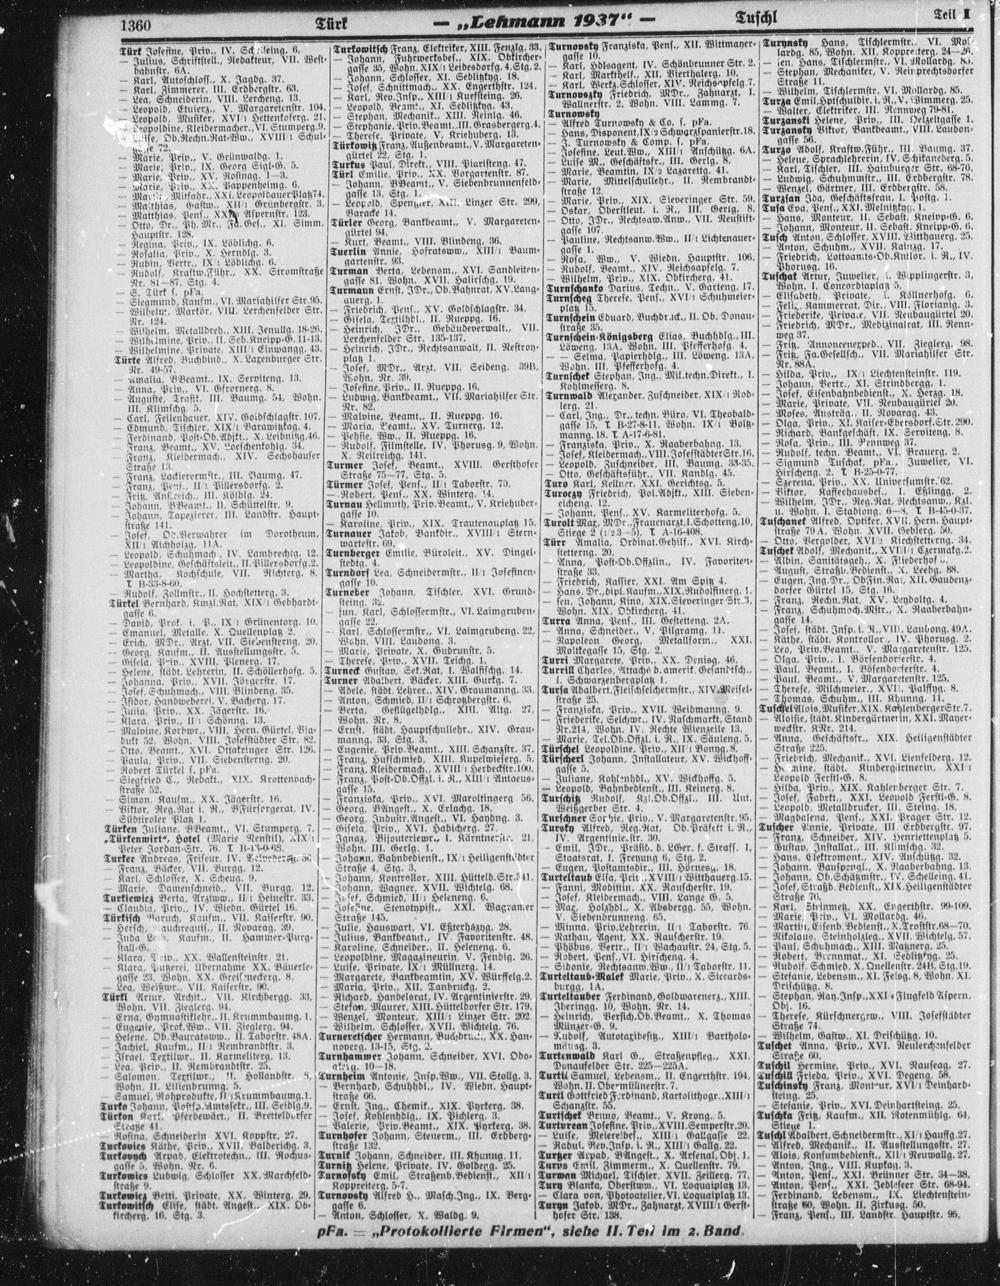 1360
Türk
— „Lehmann 1937“ —
Tuschl
Teil I
Türk Josefine, Priv., IV. 6.
— Julius, Schriftstell., Redakteur, VII. West-
bahnstr. 6A.
— Karl, Autoschloss., X. Jagdg. 37.
— Karl, Zimmerer, III. Erdbergstr. 63.
— Lea, Schneiderin, VIII. Lercheng. 13.
— Leopold, Margaretenstr. 104.
— Leopold, Musiker, XVI/1 Hettenkoferg. 21.
— Leopoldine, Kleidermacher, VI. Stumperg. 9.
— Luise, Ob.Rechn.Rat-Ww., XVIII/1 Schul-
gasse 72.
— Marie, Priv., V. Grünwaldg. 1.
— Marie, Priv., IX. Georg Sigl-G. 5.
— Marie, Priv., XV. Rosinag. 1—3.
— Marie, Priv., XX. Pappenheimg. 6.
— Mitfahr., XXI. Leopoldauer Platz 74.
— Matthias, Gastw., XII/1 Grünbergstr. 3.
— Matthias, Pens., XXI. Aspernstr. 123.
— Otto, Dr., Ph. Mr., Fa.Ges., XI. Simm.
Hauptstr. 128.
— Regina, Priv., IX. Löblichg. 6.
— Rosalia, Priv., X. Herndlg. 3.
— Rubin, Vertr., IX. Löblichg. 6.
— Rudolf, Kraftw.Führ., XX. Stromstraße
Nr. 81—87, Stg. 4.
— S. Türk f. pFa.
— Siegmund, Kaufm., VI. Mariahilfer Str. 95.
— Wilhelm, Markör, VIII. Lerchenfelder Str.
Nr. 124.
— Wilhelm, Metalldreh., XIII. Jenullg. 18-26.
— Wilhelmine, Priv., II. Seb.Kneipp-G. 11-13.
— Wilhelmine, Private, XIII/1 Einwangg. 43.
Türke Alfred, Buchbind., X. Laxenburger Str.
Nr. 49-57.
— Amalia, BBeamt., IX. Serviteng. 13.
— Anna, Priv., VI. Gfrornerg. 8.
— Auguste, Trafik, III. Baumg. 54, Wohn.
III. Klimschg. 5.
— Carl, Feilenhauer, XIV. Goldschlagstr. 107.
— Edmund, Tischler, XIX/1 Barawitzkag. 4.
— Ferdinand, Post-Ob.Adjkt., X. Leibnitzg. 46.
— Franz, Beamt., XV. Loeschenkohlg. 34.
— Franz, Kleidermach., XIV. Sechshauser
Straße 13.
— Franz, Lackierermstr., III. Baumg. 47.
— Franz, Pens., II/1 Pillersdorfg. 2.
— Fritz, Anstreich., III. Kölblg. 24.
— Johann, BBeamt., II. Schüttelstr. 9.
— Johann, Tapezierer, III. Landstr. Haupt-
straße 141.
— Josef, Ob.Verwahrer im Dorotheum,
XII/1 Aichholzg. 11A.
— Leopold, Schuhmach., IV. Lambrechtg. 12.
— Leopoldine, Geschäftsleit., II. Pillersdorfg. 2.
— Martha, Kochschule, VII. Richterg. 8.
T. B-33-8-60.
— Rudolf, Zollmstr., II. Hochstetterg. 3.
Türkel Bernhard, Kmzl.Rat, XIX/1 Gebhardt-
gasse 6.
— David, Prof. i. P., IX/1 Grünentorg. 10.
— Emanuel, Metalle, X. Quellenplatz 2.
— Erich, MDr., Arzt, VII. Siebensterng. 20.
— Georg, Kaufm., II. Ausstellungsstr. 5.
— Gisela, Priv., XVIII. Plenerg. 17.
— Helene, städt. Lehrerin, III. Schöllerhofg. 5.
— Johanna, Priv., XVII. Jörgerstr. 17.
— Josef, Schuhmach., VIII. Blindeng. 35.
— Isidor, Handweberei, V. Bacherg. 17.
— Julia, Priv., XX. Jägerstr. 16.
— Klara, Priv., II/1 Schönng. 13.
— Malvine, Korbw., VIII. Hern. Gürtel, Via-
dukt 52, Wohn. VIII. Josefstädter Str. 82.
— Otto, Beamt., XVI. Ottakringer Str. 126.
— Paula, Priv., VII. Siebensterng. 20.
— Robert Türkel f. pFa.
— Siegfried C., Redakt., XIX. Krottenbach-
straße 52.
— Simon, Kaufm., XX. Jägerstr. 16.
— Viktor, Reg.Rat i. R., BFürsorgerat, IV.
Südtiroler Platz 1.
Türken Juliane, BBeamt., VI. Stumperg. 7.
„Türkenwirt“, Hotel (Marie Menstil), XIX/1
Peter Jordan-Str. 76. T. B-13-0-68.
Turker Andreas, Friseur, IV.
— Franz, Bäcker, VII. Burgg. 12.
— Karl, Schlosser, X. Scheug. 9.
— Marie, Damenschneid., VII. Burgg. 12.
Turkiewicz Berta, Arztww., II/1 Heinestr. 33.
— Claudia, Priv., IV. Wiedn. Gürtel 16.
Türkisch Baruch, Kaufm., VII. Kaiserstr. 90.
— Hersch, Rauchrequis., II. Novarag. 39.
— Juda Leib, Kaufm., II. Hammer-Purg-
stall-G. 3.
— Klara, Priv., XX. Wallensteinstr. 21.
— Klara, Putzerei, Übernahme XX. Bäuerle-
gasse 23, Wohn. XX. Greiseneckerg. 8.
— Lea, Weißw., VII. Kaiserstr. 90.
Türkl Artur, Archit., VII. Kirchbergg. 33,
Wohn. VII. Zieglerg. 94.
— Erna, Gymnastiklehr., II. Krummbaumg. 1.
— Eugenie, Prof.Ww., VII. Zieglerg. 94.
— Helene, Ob.Baratsww., II. Taborstr. 48A.
— Jachiel, Kaufm., II/1 Rembrandtstr. 3.
— Israel, Textilwr., II. Karmeliterg. 13.
— Lea, Priv., II. Rembrandtstr. 25.
— Salomon, Textilwr., II. Hollandstr. 8,
Wohn. II. Lilienbrunng. 5.
— Samuel, Rohprodukte, II/1 Krummbaumg. 1.
Turko Johann, Postsp.Amtssekr., III. Seidlg. 9.
Türkon Karl, Pferdewärt., II. Bretteldorfer
Straße 41.
— Rosina, Schneiderin, XVI. Koppstr. 27.
Turkovics Käthe, Priv., XVII. Balderichg. 3.
Turkovych Arpad, Elektrotechn., III. Rochus-
gasse 5, Wohn. Nr. 6.
Turkowics Ludwig, Schlosser, XX. Marchfeld-
straße 9.
Turkowicz Betti, Private, XX. Winterg. 29.
Turkowitsch Elise, städt. Angest., XIX. Ob-
kircherg. 16, Stg. 3.
Turkowitsch Franz, Elektriker, XIII. Fenzlg. 33.
— Johann, Fuhrwerksbes., XIX. Obkircher-
gasse 35, Wohn. XIX/1 Leidesdorfg. 4, Stg. 2.
— Johann, Schlosser, XI. Sedlitzkyg. 18.
— Josef, Schnittmach., XX. Engerthstr. 124.
— Karl, Rev.Insp., XIII/1 Kuefsteing. 26.
— Leopold, Beamt., XI. Sedlitzkyg. 43.
— Stephan, Mechanik., XIII. Reinlg. 46.
— Stephanie, Priv.Beamt., III. Grasbergerg. 4.
— Therese, Private, V. Kriehuberg. 13.
Türkowitz Franz, Außenbeamt., V. Margareten-
gürtel 22, Stg. 1.
Turkus Paul, Direkt., VIII. Piaristeng. 47.
Türl Emilie, Priv., XX. Vorgartenstr. 87.
— Johann, BBeamt., V. Siebenbrunnenfeld-
gasse 13, Stg. 1.
— Leopold, Spengler, XIII. Linzer Str. 299,
Baracke 14.
Türler Georg, Bankbeamt., V. Margareten-
gürtel 94.
— Kurt, Beamt., VIII. Blindeng. 36.
Tuerlin Annie, Hofratsww., XIII/1 Baum-
gartenstr. 93.
Turman Berta, Lebensm., XVI. Sandleiten-
gasse 81, Wohn. XVII. Halirschg. 19.
Turmann Ernst, JDr., Ob.Bahnrat, XV. Lang-
auerg. 1.
— Friedrich, Pens., XV. Goldschlagstr. 34.
— Gisela, Textilhdl., II. Rueppg. 16.
— Heinrich, JDr., Gebäudeverwalt., VII.
Lerchenfelder Str. 135-137.
— Heinrich, JDr., Rechtsanwalt, II. Nestroy-
platz 1.
— Josef, MDr., Arzt, VII. Seideng. 39B,
Wohn. Nr. 39.
— Josefine, Priv., II. Rueppg. 16.
— Ludwig, Bankbeamt., VII. Mariahilfer Str.
Nr. 82.
— Malvine, Beamt., II. Rueppg. 16.
— Maria, Beamt., XV. Turnerg. 12.
— Pepsie, Ww., II. Rueppg. 16.
— Rudolf, Filmstelle, IV. Phorusg. 9, Wohn.
X. Neilreichg. 141.
Turmer Josef, Beamt., XVIII. Gersthofer
Straße 75—77, Stg. 5.
Türmer Josef, Pens., II/1 Taborstr. 70.
— Robert, Pens., XX. Winterg. 14.
Turnau Hellmuth, Priv.Beamt., V. Kriehuber-
gasse 10.
— Karoline, Priv., XIX. Trautenauplatz 15.
Turnauer Jakob, Bankdir., XVIII/1 Stern-
wartestr. 69.
Turnberger Emilie, Büroleit., XV. Dingel-
stedtg. 4.
Turndorf Lea, Schneidermstr., II/1 Josefinen-
gasse 10.
Turneber Johann, Tischler, XVI. Grund-
steing. 32.
— jun., Karl, Schlossermstr., VI. Laimgruben-
gasse 22.
— Karl, Schlossermstr., VI. Laimgrubeng. 22,
Wohn. VIII. Laudong. 3.
— Marie, Private, X. Gudrunstr. 5.
— Therese, Priv., XVII. Teichg. 1.
Turneck Gustav, Sek.Rat, I. Walfischg. 14.
Turner Adalbert, Bäcker, XIII. Gurkg. 7.
— Adele, städt. Lehrer., XIV. Graumanng. 33.
— Anton, Schmied, II/1 Schrotzbergstr. 6.
— Berta, Geflügelhdlg., XIII. Altg. 27,
Wohn. Nr. 8.
— Ernst, städt. Hauptschullehr., XIV. Grau-
manng. 33, Stg. 3.
— Eugenie, Priv.Beamt., XIII. Schanzstr. 37.
— Franz, Hufschmied, XIII. Kupelwieserg. 5.
— Franz, Kleidermach., XVIII/1 Herbeckstr. 100.
— Franz, Post-Ob.Offzl. i. R., XIII/1 Antaeus-
gasse 15.
— Franziska, Priv., XVI. Maroltingerg. 56.
— Georg, BAngest., X. Erlachg. 18.
— Georg, Industr.Angest., VI. Haydng. 3.
— Gisela, Priv., XVI. Habicherg. 27.
— Ignaz, Bijouteriew., I. Kärntnerstr. 21,
Wohn. III. Gerlg. 1.
— Johann, Bahnbedienst., IX/1 Heiligenstädter
Straße 4, Stg. 3.
— Johann, Kontrollor, XIII. Hütteld.Str. 341.
— Johann, Wagner, XVII. Wichtelg. 68.
— Josef, Schmied, II/1 Heleneng. 6.
— Josefine, Stenotypist., XXI. Wagramer
Straße 145.
— Julie, Hauswart, VI. Esterházyg. 28.
— Julius, Bankbeamt., IV. Favoritenstr. 48.
— Karoline, Schneider., II. Heleneng. 6.
— Leopoldine, Magazineurin, V. Fendig. 26.
— Luise, Private, IX/1 Müllnerg. 14.
— Margarete, Bankbeamtin, XV. Würffelg. 2.
— Maria, Priv., XII. Tanbruckg. 2.
— Richard, Handelsrat, IV. Argentinierstr. 29.
— Stefan, Maurer, XIII. Hütteldorfer Str. 179.
— Wenzel, Monteur, XIII/1 Linzer Str. 202.
— Wilhelm, Schlosser, XVII. Wichtelg. 76.
Turneretscher Hermann, Buchdr., XX. Han-
noverg. 13-15, Stg. 2.
Turnhammer Johann, Schneider, XVI. Obo-
rig. 10—18.
Turnheim Antonie, Insp.Ww., VII. Stollg. 3.
— Bernhard, Schuhhdl., IV. Wiedn. Haupt-
straße 66.
— Ernst, Ing., Chemik., XIX. Pyrkerg. 38.
— Josef, Kohlenhdlg., IX. Pichlerg. 3.
— Valerie, Priv.Beamt., XIX. Pyrkerg. 38.
Turnhofer Johann, Steuerm., III. Erdberg-
straße 132.
Turnik Johann, Schneider, III. Khunng. 11.
Turnitz Helene, Private, IV. Goldegg. 25.
Turnofsky Emil, Straßenb.Bedienst., XII/1
Koppreiterg. 5-7.
Turnovsky Alfred H., Masch.Ing., IX. Berg-
gasse 6.
— Anton, Schlosser, X. Waldg. 9.
Turnovsky Franziska, Pens., XII. Wittmayer-
gasse 10.
— Karl, Hdlsagent, IV. Schönbrunner Str. 2.
— Karl, Markthelf., XII. Vierthalerg. 10.
— Karl, Werkz.Schlosser, XIV. Reichsapfelg. 7.
Turnowszky Friedrich, MDr., Zahnarzt, I.
Wallnerstr. 2, Wohn. VIII. Lammg. 7.
Turnowsky
— Alfred Turnowsky & Co. f. pFa.
— Hans, Disponent, IX/2 Schwarzspanierstr. 18.
— J. Turnowsky & Comp. f. pFa.
— Josefine, Leut.Ww., XIII. Anschützg. 6A.
— Luise M., Geschäftsfr., III. Gerlg. 8.
— Marie, Beamtin, IX/2 Lazarettg. 41.
— Marie, Mittelschullehr., II. Rembrandt-
straße 12.
— Marie, Priv., XIX. Sieveringer Str. 59.
— Oskar, Oberstleut. i. R., III. Gerlg. 8.
— Otto, JDr., Rechtsanw., VII. Neustift-
gasse 107.
— Pauline, Rechtsanw.Ww., II/1 Lichtenauer-
gasse 1.
— Rosa, Ww., V. Wiedn. Hauptstr. 106.
— Rudolf, Beamt., XIV. Reichsapfelg. 7.
— Wilhelm, Priv., XIX. Obkircherg. 41.
Turnschanko Darius, Techn., V. Garteng. 17.
Turnscheg Therese, Pens., XVI/1 Schuhmeier-
platz 15.
Turnschein Eduard, Buchdr., II. Ob. Donau-
straße 35.
Turnschein-Königsberg Elias, Buchhdlg., III.
Löweng. 13A, Wohn. III. Pfefferhofg. 4.
— Selma, Papierhdlg., III. Löweng. 13A,
Wohn. III. Pfefferhofg. 4.
Turnschek Stephan, Ing., Mil.techn.Direkt., I.
Kohlmesserg. 8.
Turnwald Alexander, Zuschneider, XIX/1 Rod-
lerg. 21.
— Carl, Ing., Dr., techn. Büro, VI. Theobald-
gasse 15, T. B-27-8-11, Wohn. IX/1 Boltz-
manng. 18. T. A-17-6-81.
— Franziska, Priv., X. Raaberbahng. 13.
— Josef, Kleidermach., VIII. Josefstädter Str. 16.
— Leopold, Zuschneider, III. Baumg. 33-35.
— Otto, Geschäftsführ., VII. Kandlg. 45.
Turo Karl, Kellner, XXI. Gerichtsg. 5.
Turoczy Friedrich, Pol.Adjkt., XIII. Sieben-
eicheng. 12.
— Johann, Pens., XV. Karmeliterhofg. 5.
Turolt Max, MDr., Frauenarzt, I. Schotteng. 10,
Stiege 2 (1/23—5), T. A-16-408.
Türr Amalia, Ordinat.Gehilf., XVI. Kirch-
stetterng. 20.
— Anna, Post-Ob.Offzlin., IV. Favoriten-
straße 33.
— Friedrich, Kassier, XXI. Am Spitz 4.
— Hans, Dr., dipl. Kaufm., XIX. Rudolfinerg. 1.
— sen., Johann, Kino, XIX. Sieveringer Str. 3,
Wohn. XIX. Obkircherg. 41.
Turra Anna, Pens., III. Gestetteng. 2A.
— Anna, Schneider., V. Pilgramg. 11.
— Napoleon Georg, Metallform., XXI.
Moltkegasse 15, Stg. 2.
Turri Margarete, Priv., XX. Denisg. 46.
Turrill Charles, Attach. d. amerik. Gesandtsch.,
I. Schwarzenbergplatz 1.
Tursa Adalbert, Fleischselchermstr., XIV. Meisel-
straße 25.
— Franziska, Priv., XVII. Weidmanng. 9.
— Friederike, Selchwr., IV. Naschmarkt, Stand
Nr. 214, Wohn. IV. Rechte Wienzeile 13.
— Marie, Tel.Ob.Offzl. i. R., IX. Säuleng. 5.
Türschel Leopoldine, Priv., XII/1 Bonyg. 8.
Türscherl Johann, Installateur, XV. Wichoff-
gasse 5.
— Juliane, Kohlenhdl., XV. Wichoffg. 5.
— Leopold, Bahnbedienst., III. Keinerg. 8.
Turschitz Rudolf, Kzl.Ob.Offzl., III. Unt.
Weißgerber Str. 4.
Turschner Sophie, Priv., V. Margaretenstr. 95.
Tursky Alfred, Reg.Rat, Ob.Präfekt i. R.,
IV. Argentinierstr. 30.
— Emil, JDr., Präsid. d. LGer. f. Strafs., I.
Staatsrat, I. Freyung 6, Stg. 2.
— Eugen, Postamtsdir., III. Hörnesg. 18.
Turteltaub Ella, Priv., XVIII/1 Witthauerg. 15.
— Fanni, Modistin, XX. Rauscherstr. 19.
— Josef, Kleidermach., VIII. Lange G. 5.
— Max, Holzhdl., X. Absbergg. 55, Wohn.
V. Siebenbrunneng. 65.
— Minna, Priv.Lehrerin, II/1 Taborstr. 76.
— Nathan, Agent, XX. Rauscherstr. 19.
— Phöbus, Vertr., II/1 Wachaustr. 24, Stg. 5.
— Robert, Pens., VI. Hirscheng. 4.
— Sidonie, Rechtsanw.Ww., II/1 Taborstr. 11.
Turteltaub-Malek Marie, Priv., X. Siccards-
burgg. 1A.
Turteltauber Ferdinand, Goldwarenerz., XIII.
Jheringg. 10, Wohn. Nr. 14.
— Heinrich, Versich.Ob.Beamt., X. Thomas
Münzer-G. 9.
— Rudolf, Autobesitz., XIII/1 Bartholo-
mäusg. 3.
Turtenwald Karl G., Straßenpfleg., XXI.
Donaufelder Str. 225—225A.
Turtli Samuel, Lebensm., II. Engerthstr. 194,
Wohn. II. Obermüllnerstr. 7.
Turtl Gottfried Ferdinand, Kartolithogr., XIII/1
Schanzstr. 55.
Turtschek Bruno, Beamt., V. Krong. 5.
Turturean Josefine, Priv., XVIII. Semperstr. 20.
— Luise, Reiserelbef., XIII/1 Gallgasse 22.
— Radul, Rev.Insp. i. R., XIII/1 Gallg. 22.
Turtzer Arpad, BAngest., X. Arsenal, Obj. 1.
Turvs Emil, Zimmerm., X. Quellenstr. 79.
Turwan Michael, Tischler, XVII. Zeilerg. 77.
Tury Blanka, Oberstww., VI. Loquaiplatz 13.
— Clara von, Photoatelier, VI. Loquaiplatz 13.
Turyn Jakob, MDr., Zahnarzt, XVII. Horst-
Turynsky Hans, Tischlermstr., VI. Mol-
lardg. 85, Wohn. XII. Koppreiterg. 24—26.
— sen., Hans, Tischlermstr., VI. Mollardg. 85.
— Stephan, Mechaniker, V. Reinprechtsdorfer
Straße 11.
— Wilhelm, Tischlermstr., VI. Mollardg. 85.
Turza Emil, Hptschuldir. i. R., V. Wimmerg. 25.
— Walter, Elektriker, III. Rennweg 79-81.
Turzanski Helene, Priv., III. Oelzeltgasse 1.
Turzansky Viktor, Bankbeamt., VIII. Laudon-
gasse 56.
Turzo Adolf, Kraftw.Führ., III. Baumg. 37.
— Helene, Sprachlehrerin, IV. Schikanederg. 5.
— Karl, Tischler, III. Hainburger Str. 68-70.
— Ludwig, Schuhmstr., III. Erdbergstr. 78.
— Wenzel, Gärtner, III. Erdbergstr. 58.
Turzsan Ida, Geschäftsfrau, I. Postg. 1.
Tusa Eva, Pens., XXI. Melnitzkyg. 1.
— Hans, Monteur, II. Sebast. Kneipp-G. 6.
— Johann, Monteur, II. Sebast. Kneipp-G. 6.
Tusch Anton, Schlosser, XVIII. Litthauerg. 25.
— Anton, Schuhm., XVII. Kainzg. 17.
— Friedrich, Lottoamts-Ob.Kntlor. i. R., IV.
Phorusg. 16.
Tuschak Artur, Juwelier, I. Wipplingerstr. 3,
Wohn. I. Concordiaplatz 5.
— Elisabeth, Private, I. Köllnerhofg. 6.
— Felix, Kammerrat, Dir., VIII. Florianig. 3.
— Friederike, Private, VII. Neubaugürtel 20.
— Friedrich, MDr., Medizinalrat, III. Renn-
weg 37.
— Fritz, Annoncenexped., VII. Zieglerg. 98.
— Fritz, Fa.Gesellsch., VII. Mariahilfer Str.
Nr. 88A.
— Hilda, Priv., IX/1 Liechtensteinstr. 119.
— Johann, Vertr., XI. Strindbergg. 1.
— Josef, Eisenbahnbedienst., X. Herzg. 18.
— Marie, Private, VII. Neubaugürtel 20.
— Moses, Austräg., II. Novarag. 43.
— Olga, Priv., XI. Kaiser-Ebersdorf.Str. 290.
— Richard, Bankgeschäft, IX. Serviteng. 8.
— Rosa, Priv., III. Rennweg 37.
— Rudolf, techn. Beamt., VI. Brauerg. 2.
— Sigmund Tuschak, pFa., Juwelier, VI.
Hirscheng. 2. T. B-25-0-77.
— Szerena, Priv., XX. Universumstr. 62.
— Viktor, Kaffeehausbes., I. Eßlingg. 2.
— Wilhelm, JDr., Reg.Rat, Rechtsanw., Kzl.
u. Wohn. I. Stadiong. 6—8. T. B-45-0-37.
Tuschanek Alfred, Optiker, XVII. Hern. Haupt-
straße 79A, Wohn. XVII. Geblerg. 50.
— Otto, Vergolder, XVI/1 Kirchstetterng. 34.
Tuschek Adolf, Mechanik., XVIII/1 Czermakg. 2.
— Albin, Sanitätsgeh., X. Fliederhof 5.
— August, Straßb.Bedienst., X. Leebg. 88.
— Eugen, Ing., Dr., ObFin.Rat, XII. Gaudenz-
dorfer Gürtel 15, Stg. 16.
— Franz, Rechn.Rat, XV. Leydoltg. 4.
— Franz, Schuhmach.Mstr., X. Raaberbahn-
gasse 14.
— Josef, städt. Insp. i. R., VIII. Laudong. 49A.
— Käthe, städt. Kontrollor, IV. Phorusg. 2.
— Leo, Priv.Beamt., V. Margaretenstr. 125.
— Olga, Priv., I. Börsendorferstr. 4.
— Paul, Beamt., I. Bösendorferstr. 4.
— Paul, Beamt., V. Margaretenstr. 125.
— Therese, Milchmeier., XVI. Palffyg. 8.
— Thomas, Schuhm., III. Khunng. 11.
Tuschel Alois, Musiker, XIX. Kahlenberger Str. 7.
— Aloisie, städt. Kindergärtnerin, XXI. Mayer-
weckstr. KNr. 214.
— Anna, Geschäftsfr., XIX. Heiligenstädter
Straße 225.
— Friedrich, Mechanik., XVI. Lienfelderg. 12.
— Hermine, städt. Kindergärtnerin, XXI/1
Leopold Ferstl-G. 8.
— Hilda, Priv., XIX. Kahlenberger Str. 7.
— Josef, Fabrikt., XXI. Leopold Ferstl-G. 8.
— Leopold, Metalldrucker, III. Steing. 18.
— Magdalena, Pens., XXI. Prager Str. 12.
Tuscher Annie, Private, III. Erdbergstr. 97.
— Franz, Schneider, XIV. Henriettenplatz 5.
— Gustav, Installat., III. Kegelg. 11.
— Hans, Elektromont., XIV. Anschützg. 32.
— Johann, Baufpengl., X. Raaberbahng. 13.
— Johann, Ob.Schaffner i. W., IV. Schellingg. 41.
— Josef, Straßb.Bedienst., XIX. Heiligenstädter
Straße 76.
— Karl, Steinmetz, XX. Engerthstr. 99-109.
— Marie, Priv., VI. Mollardg. 46.
— Martin, Eisenb.Bedienst., X. Troststr. 68—70.
— Nikolaus, Steinholzleg., XVII. Wichtelg. 57.
— Paul, Schuhmach., XIII. Matznerg. 25.
— Robert, Brennmat., XI. Sedlitzkyg. 25.
— Rudolf, Schmied, X. Quellenstr. 24B, Stg. 19.
— Stefanie, Lebensm., XI. Felsg. 8, Wohn. XI.
Drischützg. 8.
— Stephan, Ray.Insp., XXI/1 Flugfeld Aspern,
Obj. 16.
— Therese, Kürschnergew., VIII. Josefstädter
Straße 74.
— Wilhelm, Gastw., XI. Drischützg. 10.
Tuschet Anna, Priv., XVI. Neulerchenfelder
Straße 60.
Tuschil Hermine, Priv., XVI. Raufeag. 27.
Tuschill Frieda, Priv., VI. Degeng. 58.
Tuschinsky Franz, Monteur, XVI/1 Deinhardt-
steing. 25.
— Stefanie, Priv., XVI. Deinhartsteing. 25.
Tuschka Fritz, Kaufm., XII. Rotenmühlg. 64,
Stiege 1.
Tuschl Adalbert, Schneidermstr., XI/1 Hauffg. 27.
— Alfred, Mechanik., II. Ausstellungsstr. 27.
— Alois, Konsumbedienst., XII/1 Neuwallg. 27.
— Anton, Ing., VIII. Kupkag. 3.
— Anton, Pens., XXI. Brünner Str. 34—38.
— Anton, Pens., XXI. Jedleseer Str. 68-94.
— Ferdinand, Lebensm., IX. Liechtenstein-
straße 60, Wohn. II. Zirkusg. 50.
— Franz, Pens., III. Landstr. Hauptstr. 95.
pFa. = „Protokollierte Firmen“, siehe II. Teil im 2. Band.